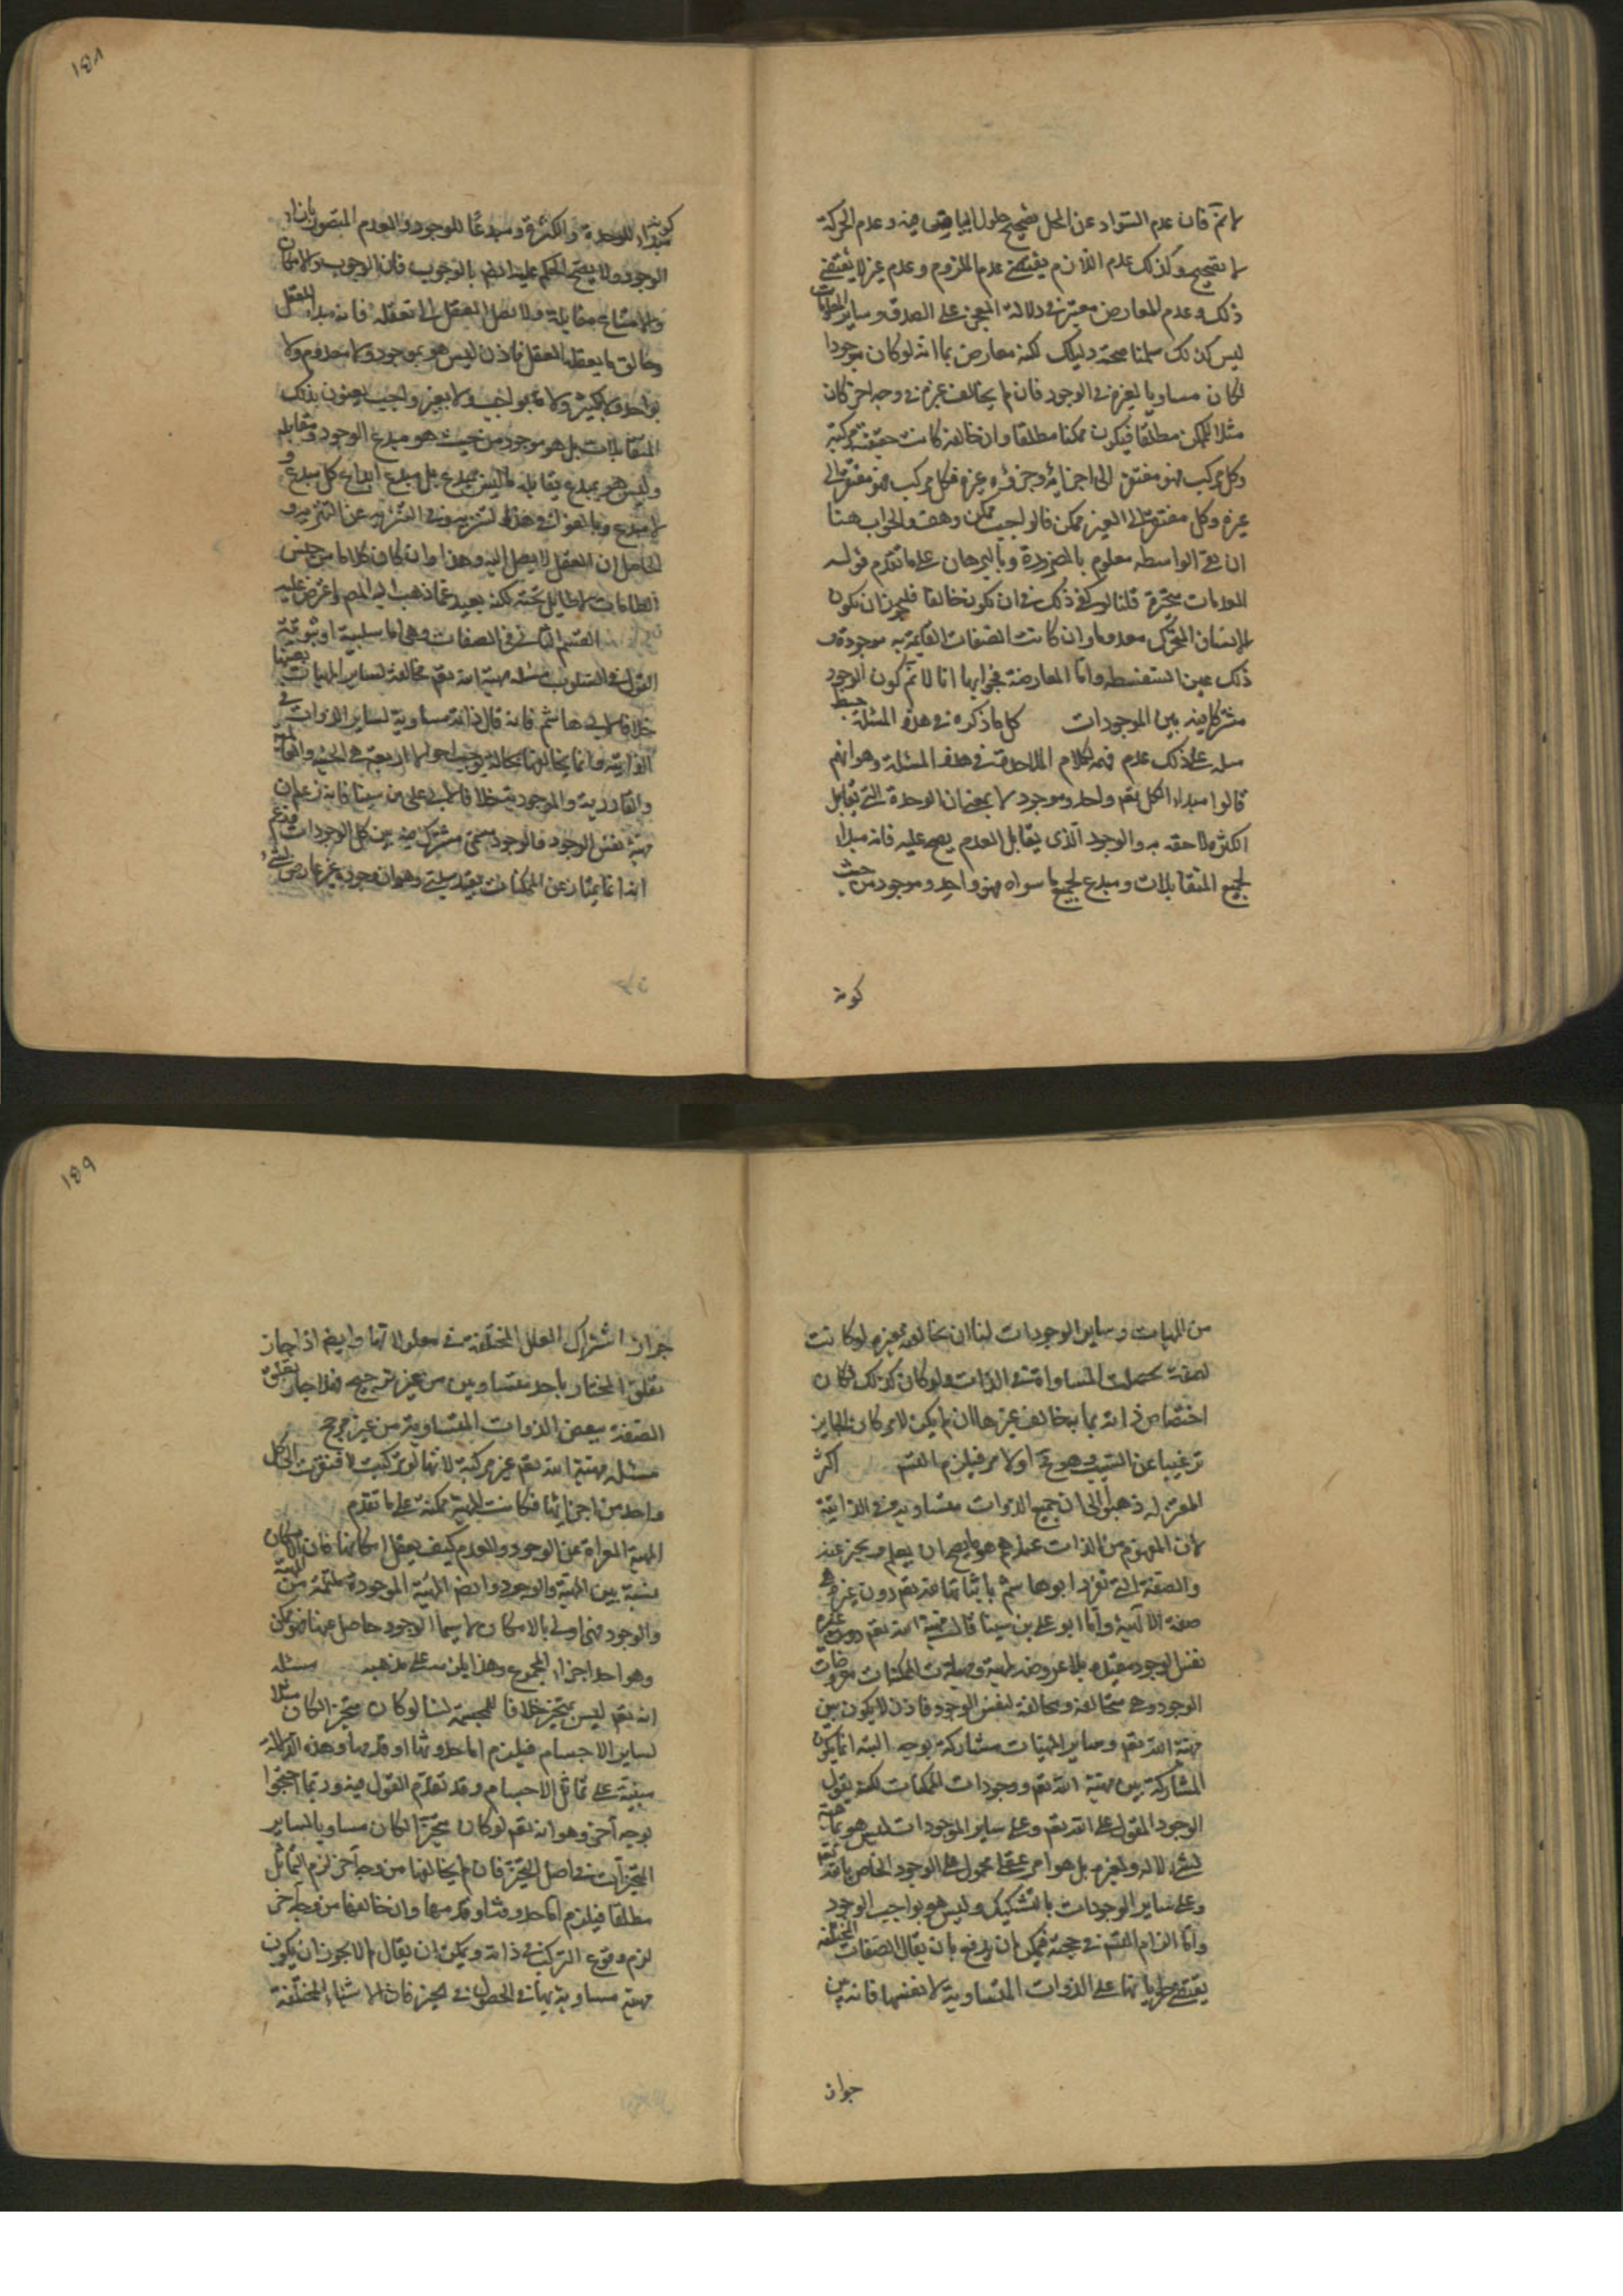 لا نم فان عدم السواد عن المحل يصحح حلول البياض فيه وعدم الحركة
لا يصحح وكذلك عدم اللازم يقتضي عدم الملزوم وعدم غيره لا يقتضي
ذلك وعدم المعارض معتبر في دلالة المعجز على الصدق وساير المعلومات
ليس كذلك سلمنا صحة دليلك لكنه معارض بما انه لو كان موجودا
لكان مساويا لغيره في الوجود فان لم يخالف غيره في وجه اخر كان
مثلا للممكن مطلقا فيكون ممكنا مطلقا وان خالفه كانت حقيقته مركبة
وكل مركب فهو مفتقر الى اجزائه وجزؤه غيره فكل مركب فهو مفتقر الى
غيره وكل مفتقر الى الغير ممكن فالواجب ممكن وهف والجواب هنا
ان نفي الواسطه معلوم بالضرورة وبالبرهان على ما تقدم قوله
المعدومات متحيزة قلنا لو كفى ذلك في ان يكون خالقا فليجز ان يكون
الانسان المتحرك معدوما وان كانت الصفات القايمة به موجودة و
ذلك عين السفسطه واما المعارضة فجوابها انا لا نم كون الوجود
مشتركا فيه بين الموجودات كل ما ذكره في هذه المسئلة خبط
على ذلك عدم فهمه لكلام الملاحدة في هذه المسئلة وهو انهم
قالوا مبداء الكل تعم واحد وموجود لا بمعنى ان الوحدة التي تقابل
الكثرة لاحقه به والوجود الذي يقابل العدم يصح عليه فانه مبداء
لجميع المتقابلات ومبدع لجميع ما سواه فهو واحد وموجود من حيث
كونه
١٥٨
كونه مبداء للوحدة والكثرة ومبدعا للوجود والعدم المتصور بازاء
الوجود ولا يصح الحكم عليه ايضا بالوجوب فان الوجوب والامكان
والامتناع متقابلة ولا يصل العقل الى تعقله فانه مبداء العقل
وخالق ما يعقله العقل فاذن ليس هو بموجود ولا معدوم ولا
بواحد ولا كثير ولا بواجب ولا بغير واجب يعنون بذلك
المتقابلات بل هو موجود من حيث هو مبدع الوجود ومقابله
وليس هو بمبدع يقابله ما ليس بمبدع بل مبدع ابداع كل مبدع و
لا مبدع وبالغوا في هذا التنزيه وفي التنزيه عن التنزيه و
الحاصل ان العقل لا يصل اليه وهذا وان كان كلاما من جنس
الطامات لا طايل تحته لكنه بعيد عما ذهب اليه المص واعترض عليه
القسم الثاني في الصفات وهي اما سلبية او ثبوتية
القول في السلوب مسئلة مهية الله تعم مخالفة لساير المهيات بعينها
خلافا لابي هاشم فانه قال ذاته مساوية لساير الذوات في
الذاتية وانما يخالفها بحالة يوجب احوالا اربعة هي الحيية والعالمية
والقادرية والموجودية خلافا لابي علي بن سينا فانه زعم ان
مهيته نفس الوجود والوجود مسمى مشترك فيه بين كل الموجودات وزعم
انه انما يمتاز عن الممكنات بقيد سلبي وهو ان وجوده غير عارض لشي
من المهيات وساير الوجودات لنا ان مخالفته لغيره لو كانت
لصفة لحصلت المساواة في الذات ولو كان كذلك لكان
اختصاص ذاته بما به يخالف غيرها ان لم يكن لامر كان الجايز
غنيا عن السبب وهو مح او لامر فيلزم التسلسل اكثر
المعتزله ذهبوا الى ان جميع الذوات متساوية في الذاتية
لان المفهوم من الذات عندهم هو ما يصح ان يعلم ويخبر عنه
والصفة التي تفرد ابو هاشم باثباتها لله تعم دون غيره هي
صفة الالهية واما ابو علي بن سينا قال مهية الله تعم دون غيره
نفس الوجود مقيد بلا عروضه لمهية ومهيات الممكنات معروضات
الوجود وهي متخالفة ومخالفة لنفس الوجود فاذن لا يكون بين
مهية الله تعم وساير المهيات مشاركة بوجه البتة انما يكون
المشاركة بين مهية الله تعم ووجودات الممكنات لكنه يقول
الوجود المقول على الله تعم وعلى ساير الموجودات ليس هو بماهية
لشيء لا له ولا لغيره بل هو امر عقلي محمول على الوجود الخاص بالله تعم
وعلى ساير الوجودات بالتشكيك وليس هو بواجب الوجود
واما الزام التسلسل في حجته فيمكن ان يدفع بان يقال الصفات المختلفة
يقتضي طريانها على الذوات المتساوية لا نفسها فانه بين
جواز
١٥٩
جواز اشتراك العلل المختلفة في معلولاتها وايضا اذا جاز
تعلق المختار باحد متساويين من غير ترجيح فلا جاز تعلق
الصفة ببعض الذوات المتساوية من غير مرجح
مسئله مهية الله تعم غير مركبة لانها لو تركبت لافتقرت الى كل
واحد من اجزائها فكانت المهية ممكنة على ما تقدم
المهية المعراة عن الوجود والعدم كيف يعقل امكانها فان الامكان
نسبة بين المهية والوجود وايضا المهية الموجودة ملتئمة من المهية
والوجود فهي اولى بالامكان لا سيما الوجود حاصل عنها فهو ممكن
وهو احد اجزاء المجموع وهذا يلزمه على مذهبه مسئله
انه تعم ليس بمتحيز خلافا للمجسمة لنا لو كان متحيزا لكان مثلا
لساير الاجسام فيلزم اما حدوثها او قدمها وهذه الدلالة
مبنية على تماثل الاجسام وقد تقدم القول فيه وربما احتجوا
بوجه آخر وهو انه تعم لو كان متحيزا لكان مساويا لساير
المتحيزات في اصل التحيز فان لم يخالفها من وجه آخر لزم التماثل
مطلقا فيلزم اما حدوثها او قدمها وان خالفها من وجه آخر
لزم وقوع التركيب في ذاته ويمكن ان يقال لم لا يجوز ان يكون
مهيته مساوية لها في الحصول في الحيز فان الاشياء المختلفة